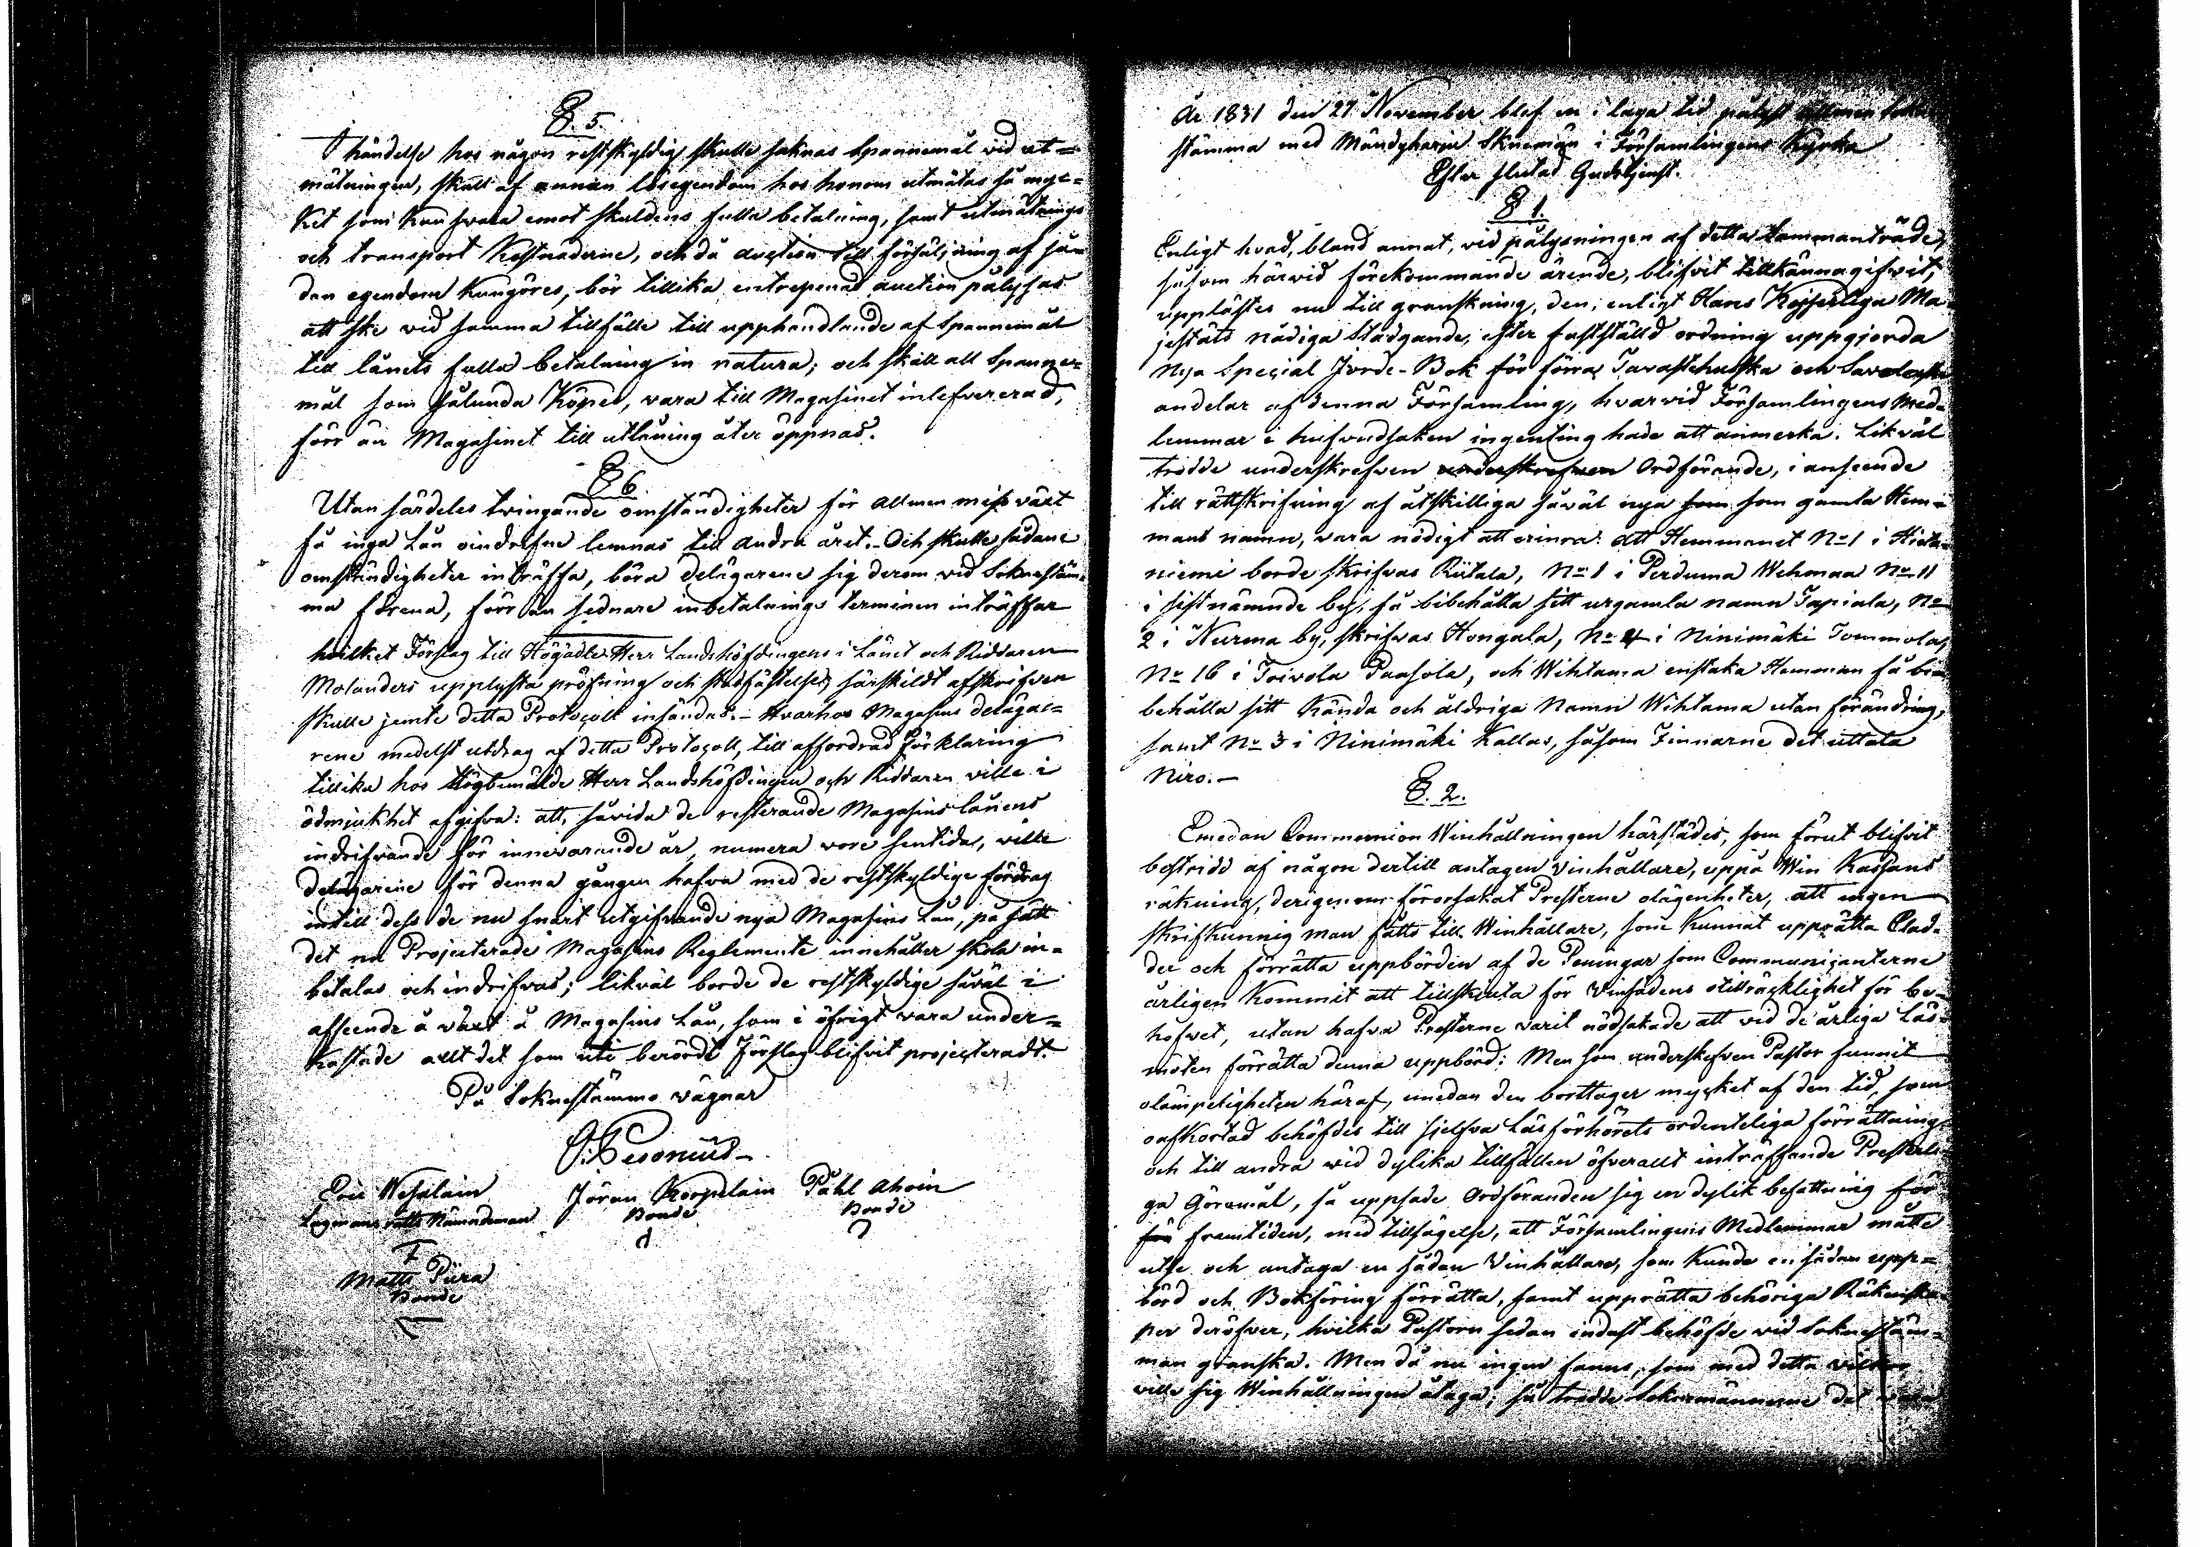 §. 5.
I händelse hos någon restskyldig skulle saknas Spannemål vid ut=
mätningen, skall af annan lösegendom hos honom utmätas så myc=
ket som kan svara emot skuldens fulla betalning, samt utmätnings
och transport Kostnaderne, och då auction till försäljning af så=
dan egendom kungöres, bör tillika entrepenad auction pålysas
att ske vid samma tillfälle till upphandlande af Spannemål
till lånets fulla betalning in natura; och skall all Spanne=
mål som sålunda Köpes, vara till Magasinet inlefvererad,
förr än Magasinet till utlåning åter öppnas.
§ 6.
Utan särdeles tvingande omständigheter för allmen missväxt
få inga Lån oindrefne lemnas till andra året. Och skulle sådane
omständigheter inträffa, böra delägarene sig derom vid Soknestäm=
ma förena, förr än sednare inbetalnings terminen inträffar
hvilket Förslag till Högädle Herr Landshöfdingens i Länet och Riddaren
Molanders upplysta pröfning och stadfästelse, särskildt afskrifven
skulle jemte detta Protocoll insändas. – Hvarhos Magasins delägar=
rene medelst utdrag af detta Protocoll, till affordrad Förklaring
tillika hos Högbemälde Herr Landshöfdingen och Riddaren ville i
ödmjukhet afgifva: att, såvida de resterande Magasins lånens
indrifvande för innevarande år, numera vore sentida, ville
delägarene för denna gången hafva med de restskyldige fördrag
intill dess de nu snart utgifvande nya Magasins Lån, på sätt
det nu Projecterade Magasins Reglemente innehåller skola in=
betalas och indrifvas; likväl borde de restskyldige såväl i
afseende å växt å Magasins Lån, som i öfrigt vara under=
kastade allt det som uti berörde Förslag blifvit projecteradt.
På Soknestämmo vägnar
O: Pesonius
Eric Wesalain Jöran Korpelain Påhl Ahoin
Lagmans rätts Nämndeman Bonde Bonde
Matts Piira
Bonde
År 1831 den 27 November blef en i laga tid pålyst allmen Sokne
stämma med Mändyharju Sknemän i Församlingens Kyrka
Efter slutad Gudstjenst.
§ 1.
Enligt hvad, bland annat, vid pålysningen af detta sammanträde,
såsom härvid förekommande ärende, blifvit tillkännagifvit,
upplästes nu till granskning, den, enligt Hans Kejserliga Ma=
jestäts nådiga Stadgande, efter fastställd ordning uppgjorda
nya Special Jorde-Bok för förra Tavastehuska och Savolaxska
andelar af denna Församling, hvarvid Församlingens Med=
lemmar i hufvudsaken ingenting hade att anmerka. Likväl
trodde underskrefven underskrefven Ordförande, i anseende
till rättskrifning af åtskilliga såväl nya som som gamla Hem=
mans namn, vara nödigt att erinra: att Hemmanet No 1 i Hieta=
niemi borde skrifvas Riitala, No 1 i Perduma Wehmaa No 11
i sistnämnde by, få bibehålla sitt urgamla namn Tapiala, No
2 i Nurma by, skrifvas Hongala, No 4 i Ninimäki Tommola,
No 16 i Toivola Paasola, och Wihtama enstaka Hemman få bi=
behålla sitt kända och äldriga Namn Wihtama utan förändring,
samt No 3 i Ninimäki kallas, såsom Finnarne det uttala
Niro. –
§. 2.
Emedan Communion Winhållningen härstädes, som förut blifvit
bestridd af någon dertill antagen vinhållare, uppå Win Kassans
räkning, derigenom förorsakat Presterne olägenheter, att ingen
skrifkunnig man fåtts till Winhållare, som kunnat upprätta Lad=
der och förrätta uppbörden af de Peningar som Communicanterne
årligen kommit att tillskiuta för vinsädens otillräcklighet för be=
hofvet, utan hafva Presterne varit nödsakade att vid de årliga Läs=
möten förrätta denna uppbörd: Men som underskrefven Pastor funnit
olämpeligheten häraf, emedan den borttager mycket af den tid, som
oafkortad behöfdes till sjelfva Läsförhörets ordenteliga förrättning
och till andra vid dylika tillfällen öfverallt inträffande Prestrerli=
ga Göromål, så uppsade Ordföranden sig en dylik befattning för
för framtiden, med tillsägelse, att Församlingens Medlemmar måtte
utse och antaga en sådan Vinhållare, som kunde en sådan upp=
börd och Bokföring förrätta, samt upprätta behöriga Räkenska=
per deröfver, hvilka Pastorn sedan endast behöfde vid Soknestäm=
man granska. Men då nu ingen fanns, som med detta vilkor
ville sig Winhållningen åtaga; så trodde Soknemännerne det